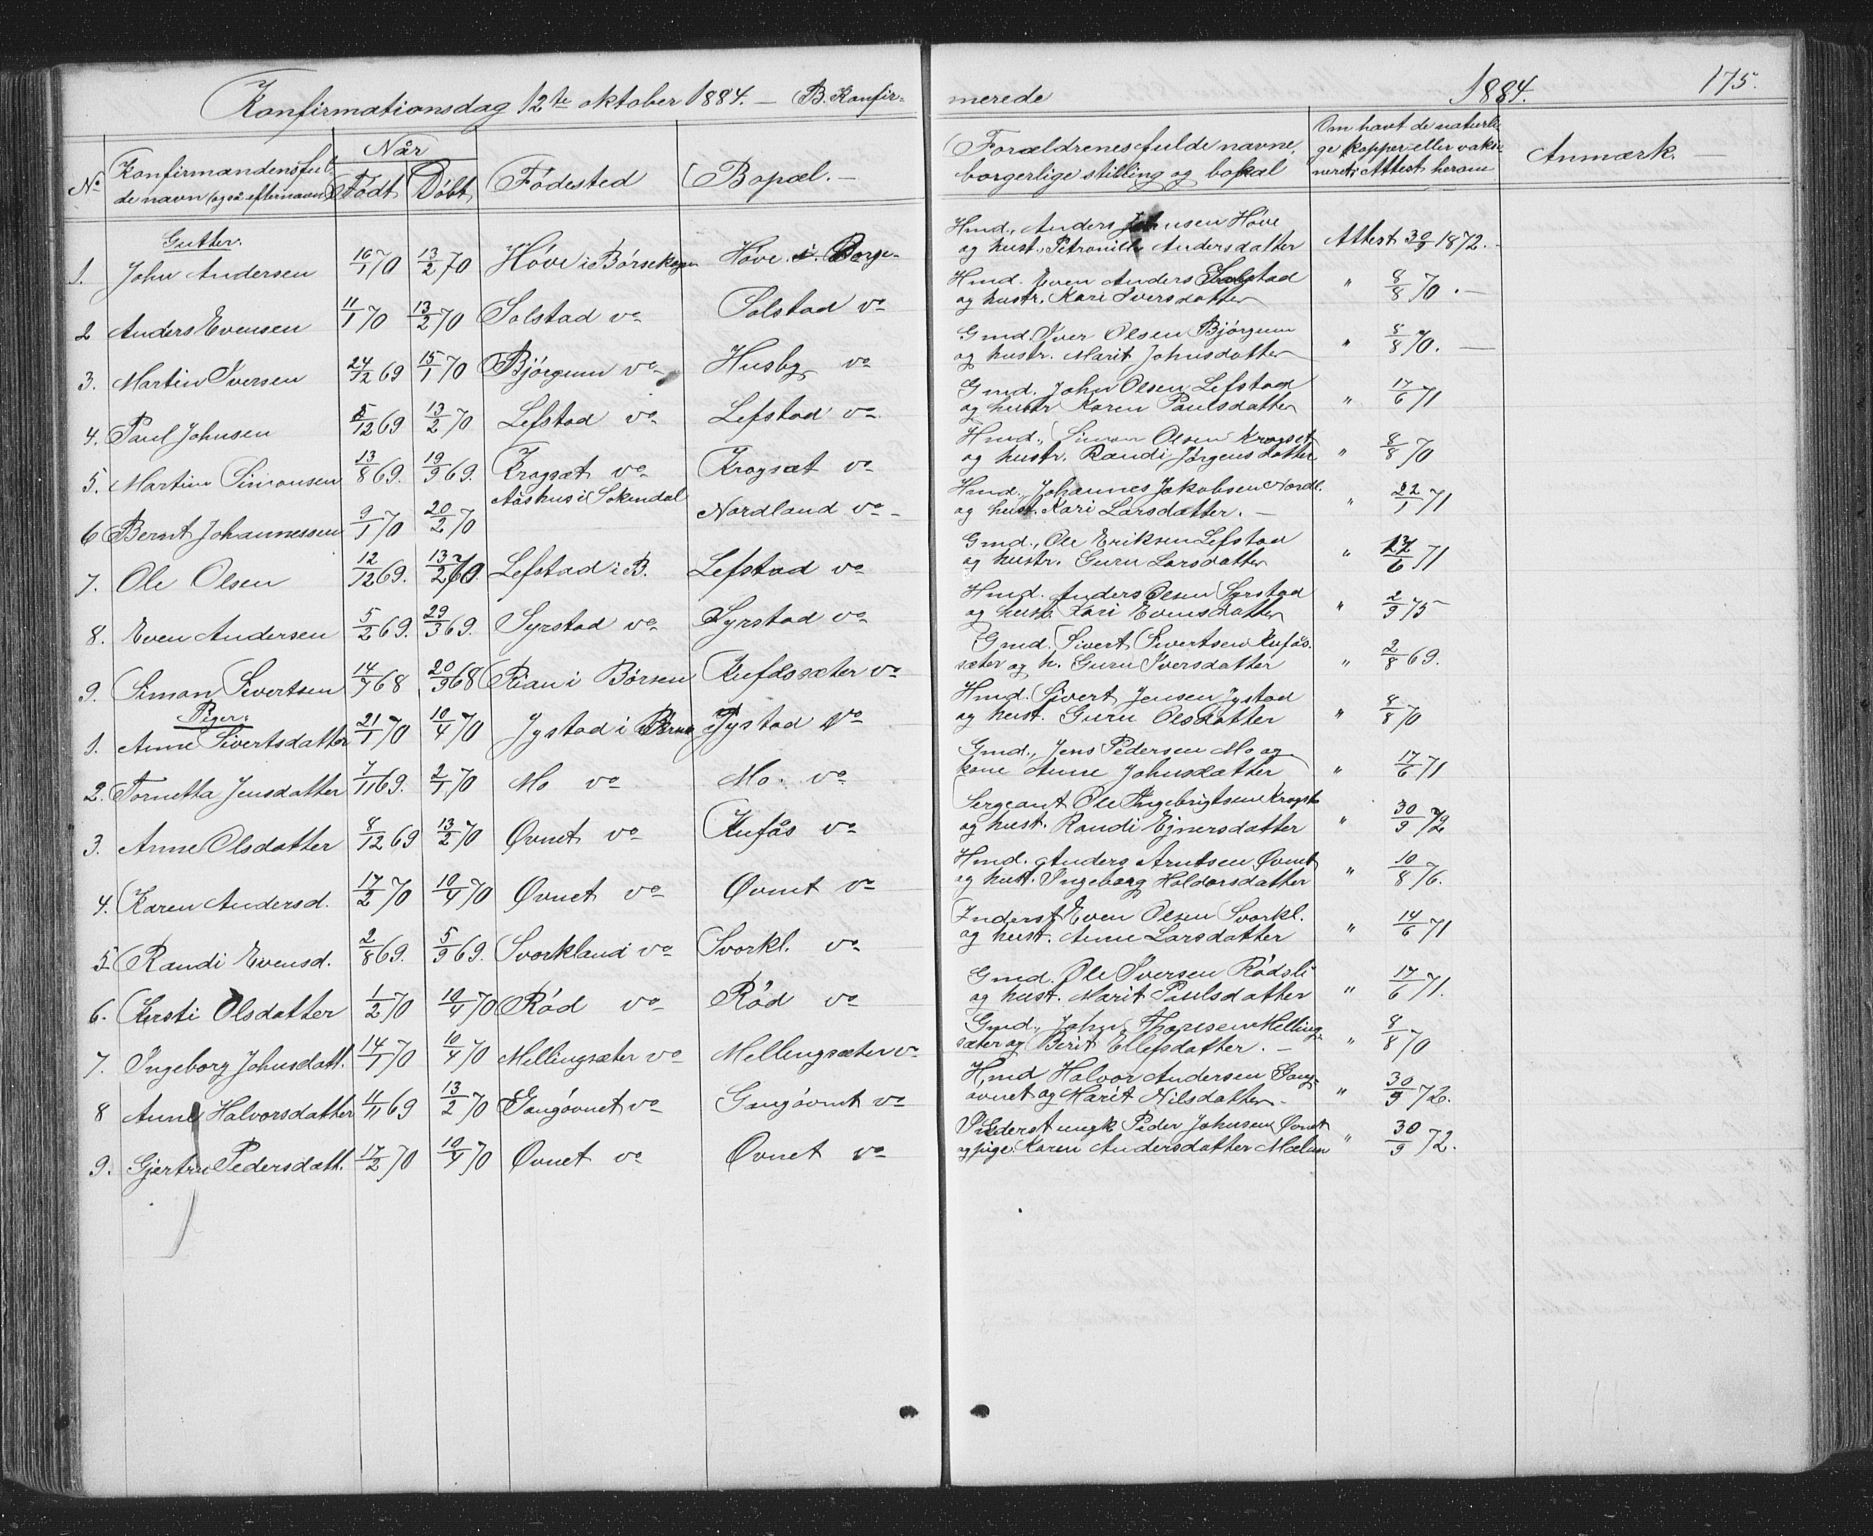 Konfirmationsdag 12te oktober 1884. — B. Konfir-
merede 1884. 175.
No Konfirmandens ful- de navn (også efternavn) Når Født Døbt Fødested Bopæl. — Forældrenes fulde navne, borgerlige stilling og bopæl Om havt de naturli- ge kopper eller vakci- neret; Attest herom Anmærk. —
Gutter.
1. John Andersen 16/1 70 13/2 70 Høve i Børseskogn Høve i Børse Hmd., Anders Johnsen Høve
og hust. Petronille Andersdatter Attest 30/9 1872. -
2 Anders Evensen 11/1 70 13/2 70 Solstad vo Solstad vo Hmd. Even Anders Solstad
og hustr. Kari Iversdatter " 8/8 70. —
3. Martin Iversen 24/12 69 15/1 70 Bjørgum vo Husby vo Gmd. Iver Olsen Bjørgum
og hustr. Marit Johnsdatter " 8/8 70. —
4. Paul Johnsen 5/12 69 13/2 70 Lefstad vo Lefstad vo Gmd. John Olsen Lefstad
og hustr Karen Paulsdatter " 17/6 71
5. Martin Simonsen 13/8 69. 19/9 69. Krogsæt vo Krogsæt vo Hmd., Simon Olsen Krogset
og hustr. Randi Jørgensdatter " 8/8 70
6 Bernt Johannessen 9/1 70 20/2 70 Aashus i Soknedal Nordland vo Hmd., Johannes Jakobsen Nordl.
og hust. Kari Larsdatter. — " 22/1 71
7. Ole Olsen 12/12 69. 13/2 70 Lefstad i B. Lefstad vo Gmd., Ole Eriksen Lefstad
og hustr. Guru Larsdatter " 17/6 71
8. Even Andersen 5/2 69. 29/3 69. Syrstad vo Syrstad vo Hmd. Anders Olsen Syrstad
og hust. Kari Evensdatter " 2/9 75
9. Simon Sivertsen 14/7 68 20/9 68 Rian i Børsen Kufåssæter vo Gmd. Sivert Sivertsen Kufås-
sæter og h. Guru Iversdatter " 2/8 69.
Piger:
1. Anne Sivertsdatter 21/1 70 10/4 70 Jystad i Børse Jystad vo Hmd. Sivert Jensen Jystad
og hust. Guru Olsdatter " 8/8 70
2. Tornetta Jensdatter 7/11 69. 2/1 70 Mo vo Mo. vo Gmd., Jens Pedersen Mo og
kone Anne Johnsdatter " 17/6 71
3. Anne Olsdatter 8/12 69 13/2 70 Øvnet vo Kufås vo Sergeant Ole Ingebrigtsen Krogst.
og hust. Randi Ejnersdatter " 30/9 72
4. Karen Andersd. 17/2 70 10/4 70 Øvnet vo Øvnet vo Hmd. Anders Arntsen Øvnet
og hust. Ingeborg Haldorsdatter " 10/8 76.
5 Randi Evensd. 2/8 69. 5/9 69. Svorkland vo Svorkl. vo Inderst Even Olsen Svorkl.
og hust. Anne Larsdatter " 14/6 71
6. Kirsti Olsdatter 1/2 70 10/4 70 Rød vo Rød vo Gmd. Ole Iversen Rødsli
og hust. Marit Paulsdatter " 17/6 71.
7. Ingeborg Johnsdatt. 14/1 70 10/4 70 Mellingsæter vo Mellingsæter vo Gmd., John Thoresen Melling-
sæter og Berit Ellefsdatter. — " 8/8 70
8 Anne Halvorsdatter 11/11 69 13/2 70 Gangøvnet vo Gangøvnet vo Hmd Halvor Andersen Gang-
øvnet og Marit Nilsdatter. " 30/9 72.
9. Gjertru Pedersdatt. 17/2 70 10/4 70 Øvnet vo Øvnet vo Inderst ungk Peder Johnsen Øvnet
og pige Karen Andersdatter Mælum " 30/9 72.